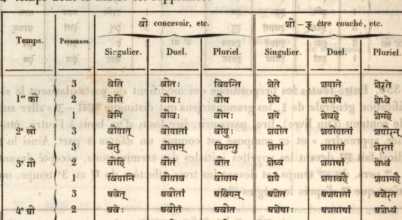 वी concevoir, etc. शी être couché, etc.
Temps. Personnes. Singulier. Duel. Pluriel. Singulier. Duel. Pluriel.
3 वेति वीतः वियन्ति शेते शयाते शेरते
1er की 2 वेषि वीथः वीथ शेषे शयाथे शेध्वे
1 वेमि वीवः वीमः शये शेवहे शेमहे
2e खी 3 वीयात् वीयातां वीयुः शयीत शयीयातां शयीरन्
3 वेतु वीतां वियन्तु शेतां शयातां शेरतां
3e गी 2 वीहि वीतं वीत शेष्व शयाथां शेध्वं
1 शयै शयावहै शयामहै
3 अवेत् अवीतां अवियन् अशेत अशयातां अशेरत
4e घी 2 अवेः अवीतं अवीत अशेथाः अशयाथां अशेध्वं